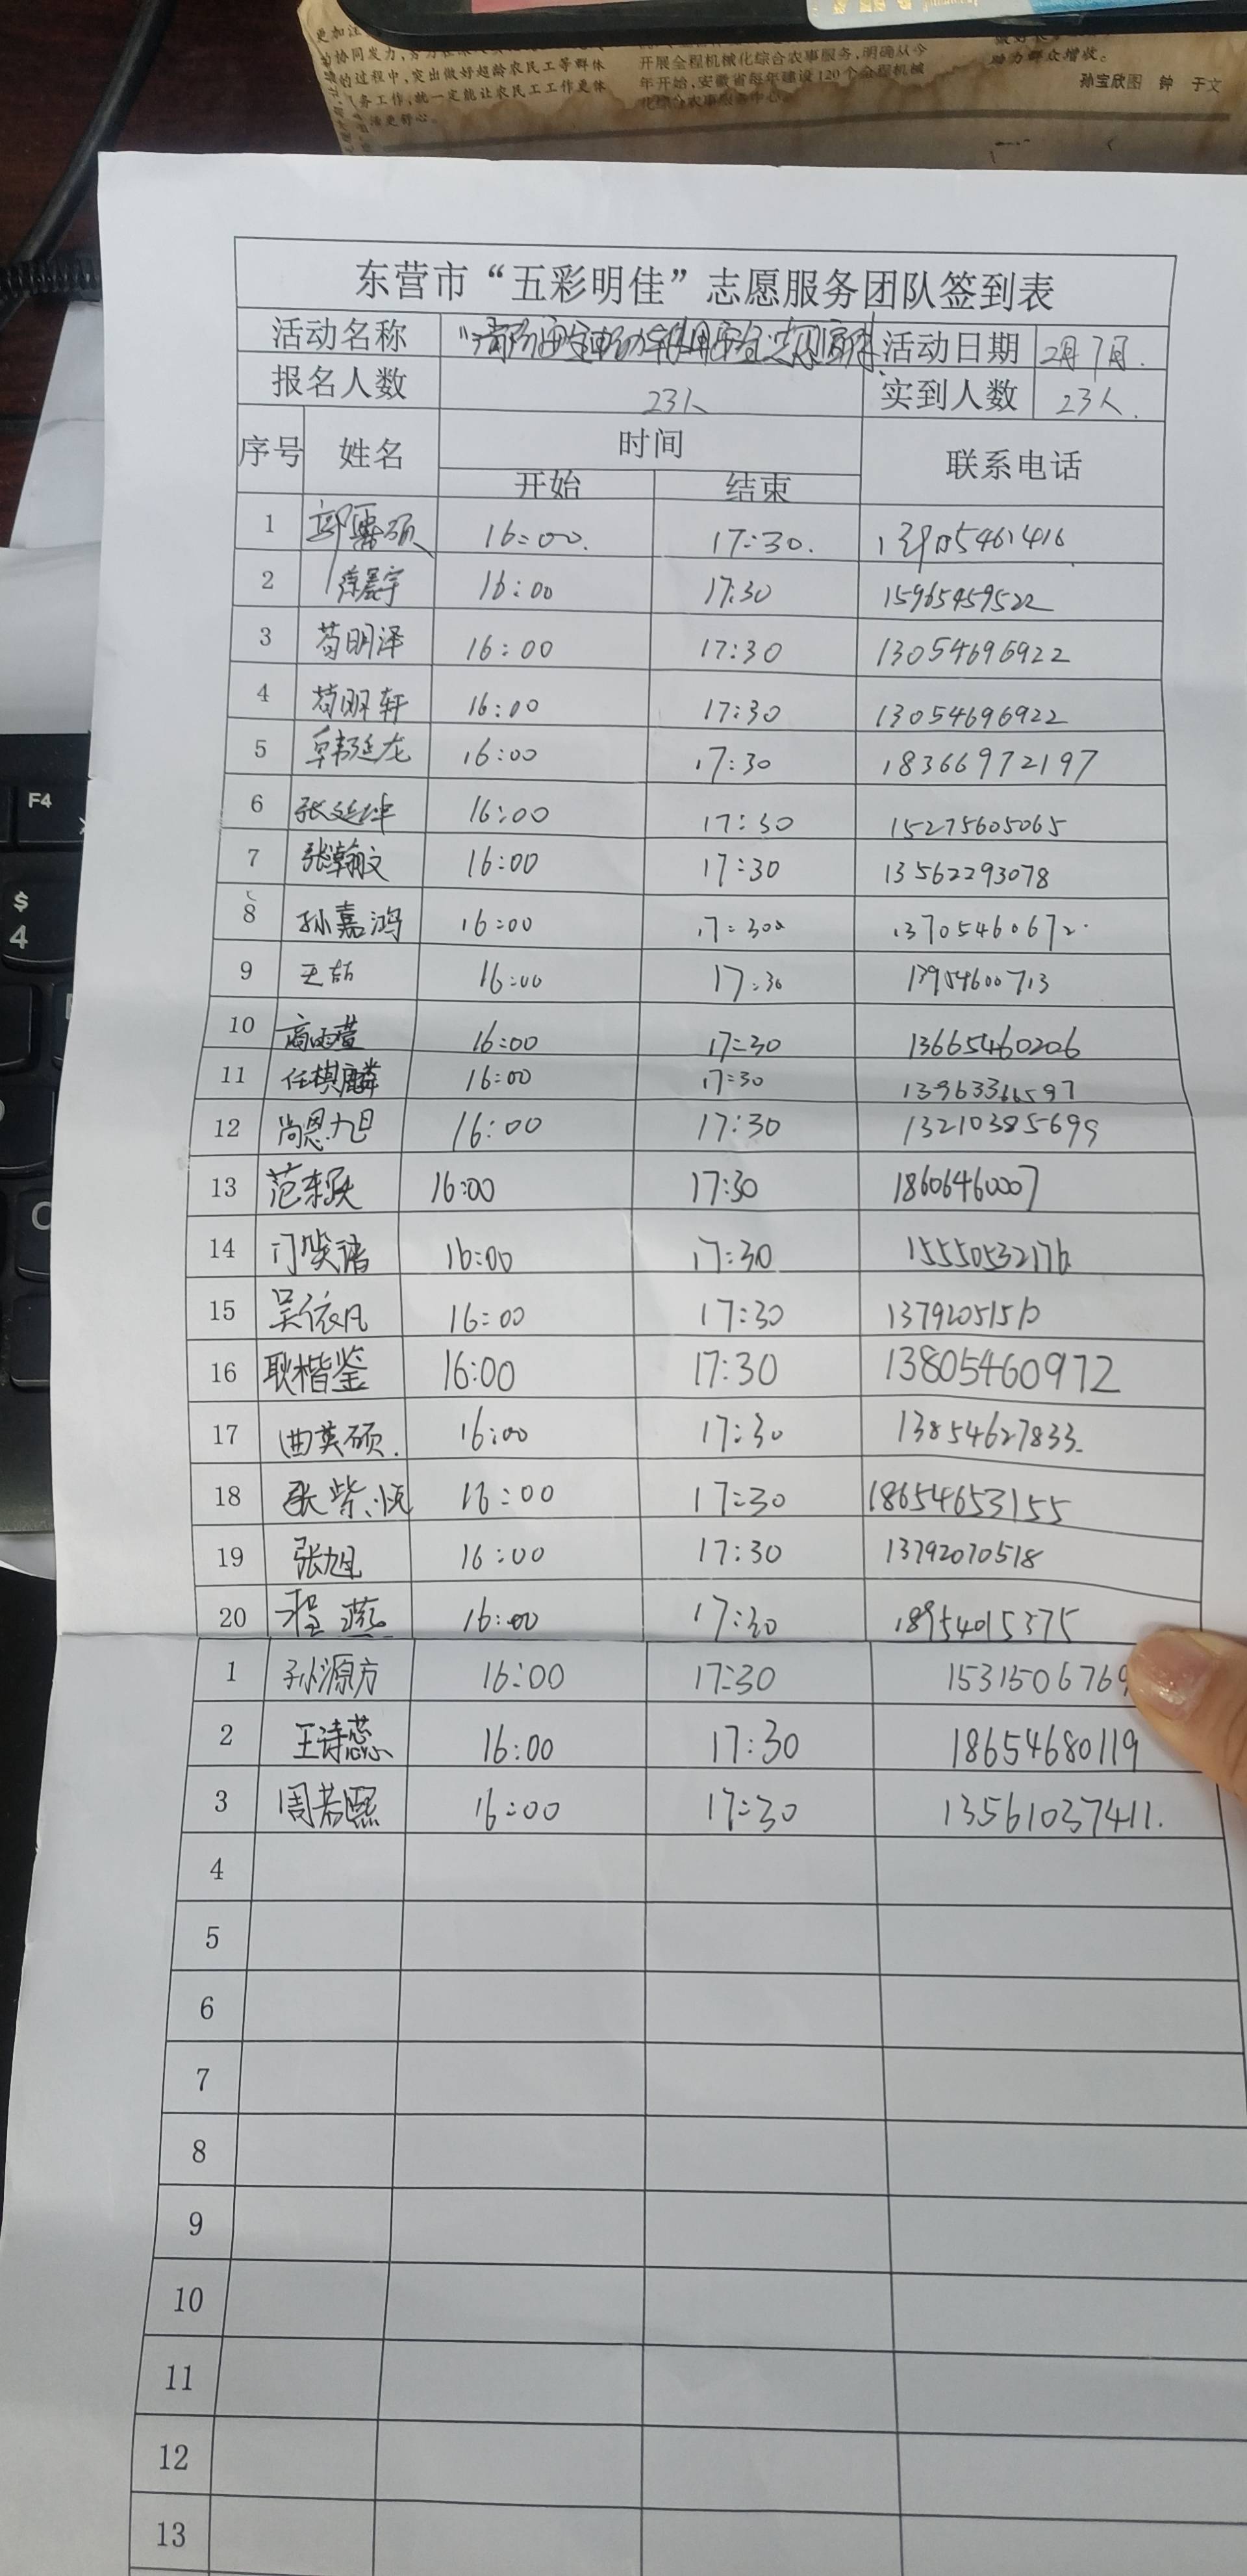 的协同发力,
的过程中,突出做好超龄农民工等群体
务工作,就一定能让农民工工作更体
活更舒心。
开展全程机械化综合农事服务,明确从今
年开始,安徽省每年建设120个全程机械
化综合农事服务中心。
助力群众增收。
孙宝欣图 钟 于文
F4
$
4
东营市“五彩明佳”志愿服务团队签到表
活动名称 活动日期 2月7日.
报名人数 23人 实到人数 23人.
序号 姓名 时间 联系电话
开始 结束
1 16:00. 17:30.
2 16:00 17:30 15965459522
3 苟明泽 16:00 17:30 13054696922
4 苟明轩 16:00 17:30 13054696922
5 韩延龙 16:00 17:30 18366972197
6 张延坤 16:00 17:30 15275605065
7 张瀚文 16:00 17:30 13562293078
8 孙嘉鸿 16:00 17:30 13705460672
9 王喆 16:00 17:30 13954600713
10 高雨萱 16:00 17:30 13665460206
11 任棋麟 16:00 17:30 13963366597
12 尚恩旭 16:00 17:30 13210385699
13 16:00 17:30 18606460007
14 16:00 17:30 15550532176
15 吴依凡 16:00 17:30
16 耿楷鉴 16:00 17:30 13805460972
17 曲英硕. 16:00 17:30 13854627833.
18 张紫悦 16:00 17:30 18654653155
19 张旭 16:00 17:30 13792070518
20 程燕 16:00 17:30 18954015375
1 孙源方 16:00 17:30 1531506769
2 王诗蕊 16:00 17:30 18654680119
3 周若熙 16:00 17:30 13561037411.
4
5
6
7
8
9
10
11
12
13